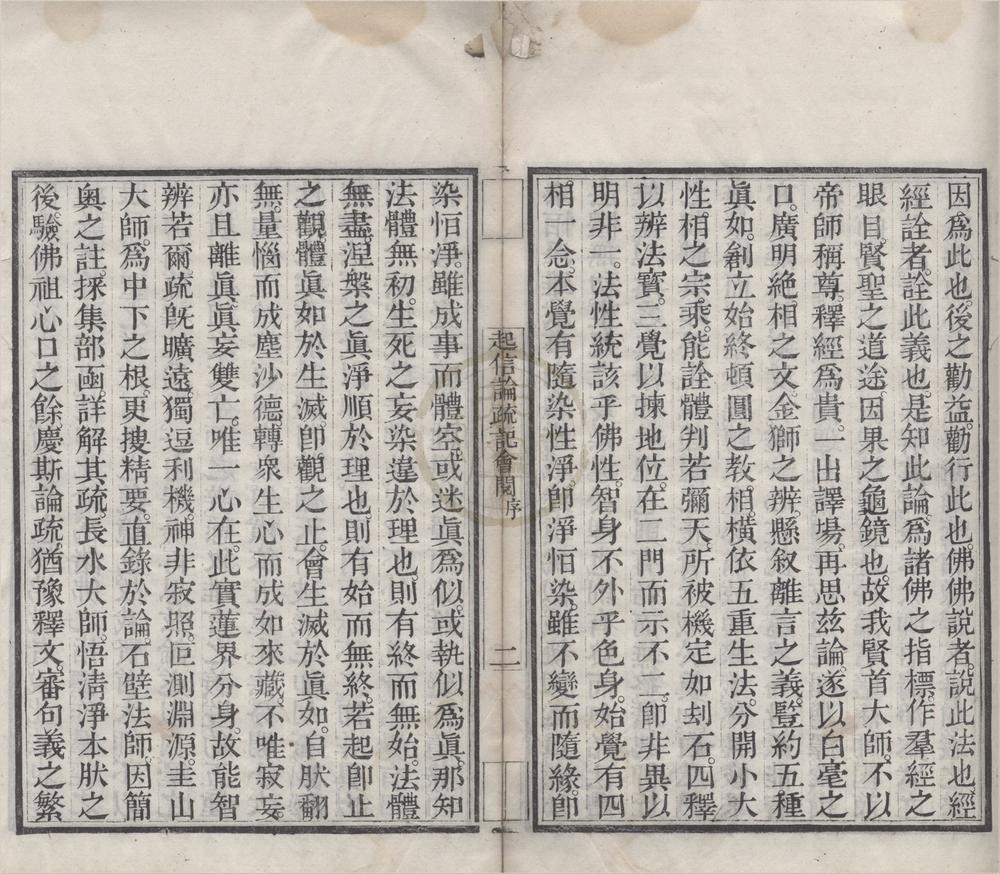 因爲此也。後之勸益。勸行此也。佛佛說者。說此法也。經
經詮者。詮此義也。是知此論。爲諸佛之指標。作羣經之
眼目。賢聖之道途。因果之龜鏡也。故我賢首大師。不以
帝師稱尊。釋經爲貴。一出譯場。再思玆論。遂以白毫之
口。廣明絶相之文。金獅之辨。懸叙離言之義。豎約五種
眞如。創立始終頓圓之敎相。橫依五重生法。分開小大
性相之宗乘。能詮體判若彌天。所被機定如刦石。四釋
以辨法寶。三覺以揀地位。在二門而示不二。卽非異以
明非一。法性統該乎佛性。智身不外乎色身。始覺有四
相一念。本覺有隨染性淨。卽淨恒染。雖不變而隨緣。卽
起信論疏記會閱序
二
染恒淨。雖成事而體空。或迷眞爲似。或執似爲眞。那知
法體無初。生死之妄染違於理也。則有終而無始。法體
無盡。涅槃之眞淨順於理也。則有始而無終。若起卽止
之觀。體眞如於生滅。卽觀之止。會生滅於眞如。自肰翻
無量惱而成塵沙德。轉衆生心而成如來藏。不唯寂妄。
亦且離眞。眞妄雙亡。唯一心在。此實蓮界分身。故能智
辨若爾。疏旣曠遠。獨逗利機。神非寂照。叵測淵源。圭山
大師。爲中下之根。更搜精要。直錄於論。石壁法師。因簡
奥之註。採集部函。詳解其疏。長水大師。悟淸淨本肰之
後。驗佛祖心口之餘慶。斯論疏。猶豫釋文。審句義之繁